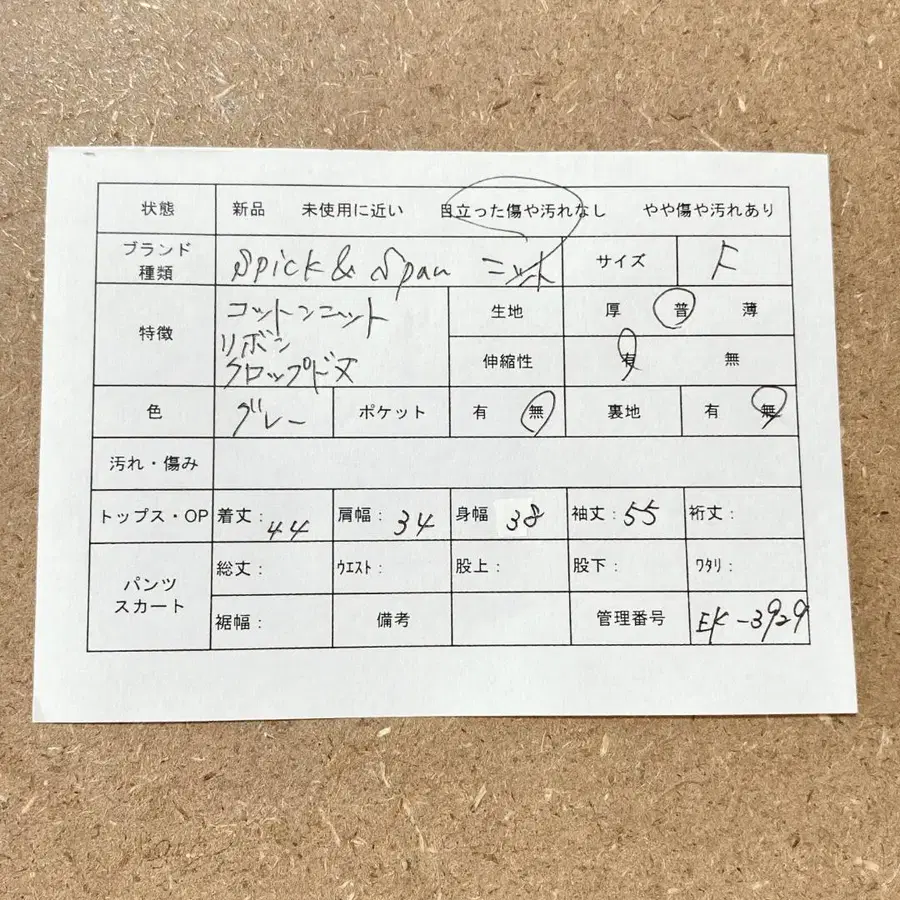 状態 新品 未使用に近い 目立った傷や汚れなし やや傷や汚れあり
ブランド種類 Spick & Span ニット サイズ F
特徴 コットンニット
リボン
クロップド丈
生地 厚 普 薄
伸縮性 有 無
色 グレー ポケット 有 無 裏地 有 無
汚れ・傷み
トップス・OP 着丈: 44 肩幅: 34 身幅 38 袖丈: 55 裄丈:
パンツ
スカート
総丈: ウエスト: 股上: 股下: ワタリ:
裾幅: 備考 管理番号 EK-3929